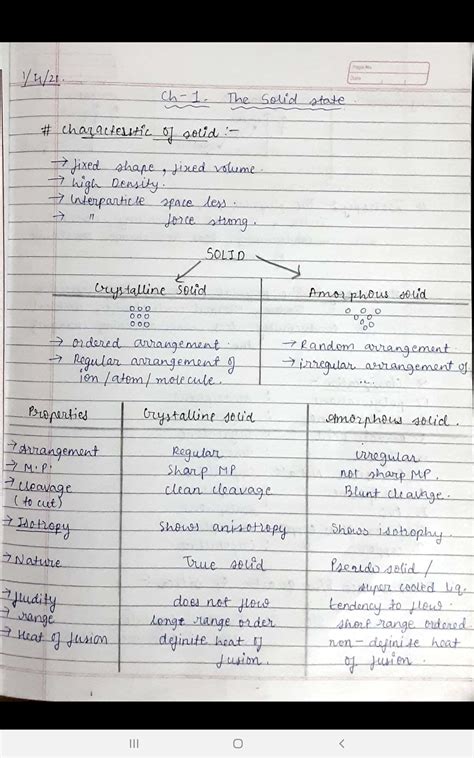 Page No.
Date
1/4/21.
Ch-1. The Solid state
# Characterstic of solid :-
→ fixed shape, fixed volume.
→ high Density.
→ Interparticle space less.
→ " force strong.
SOLID
Crystalline Solid Amorphous solid
→ ordered arrangement. → Random arrangement
→ Regular arrangement of → irregular arrangement of
ion/atom/molecule. ...
Properties Crystalline solid Amorphous solid.
→ Arrangement Regular irregular
→ M.P. Sharp MP not sharp MP.
→ Cleavage clean cleavage Blunt cleavage.
(to cut)
→ Isotropy Shows anisotropy Shows isotrophy.
→ Nature True solid Pseudo solid /
super cooled Liq.
→ fluidity does not flow tendency to flow.
→ range long range order short range ordered
→ Heat of fusion definite heat of non-definite heat
fusion. of fusion.